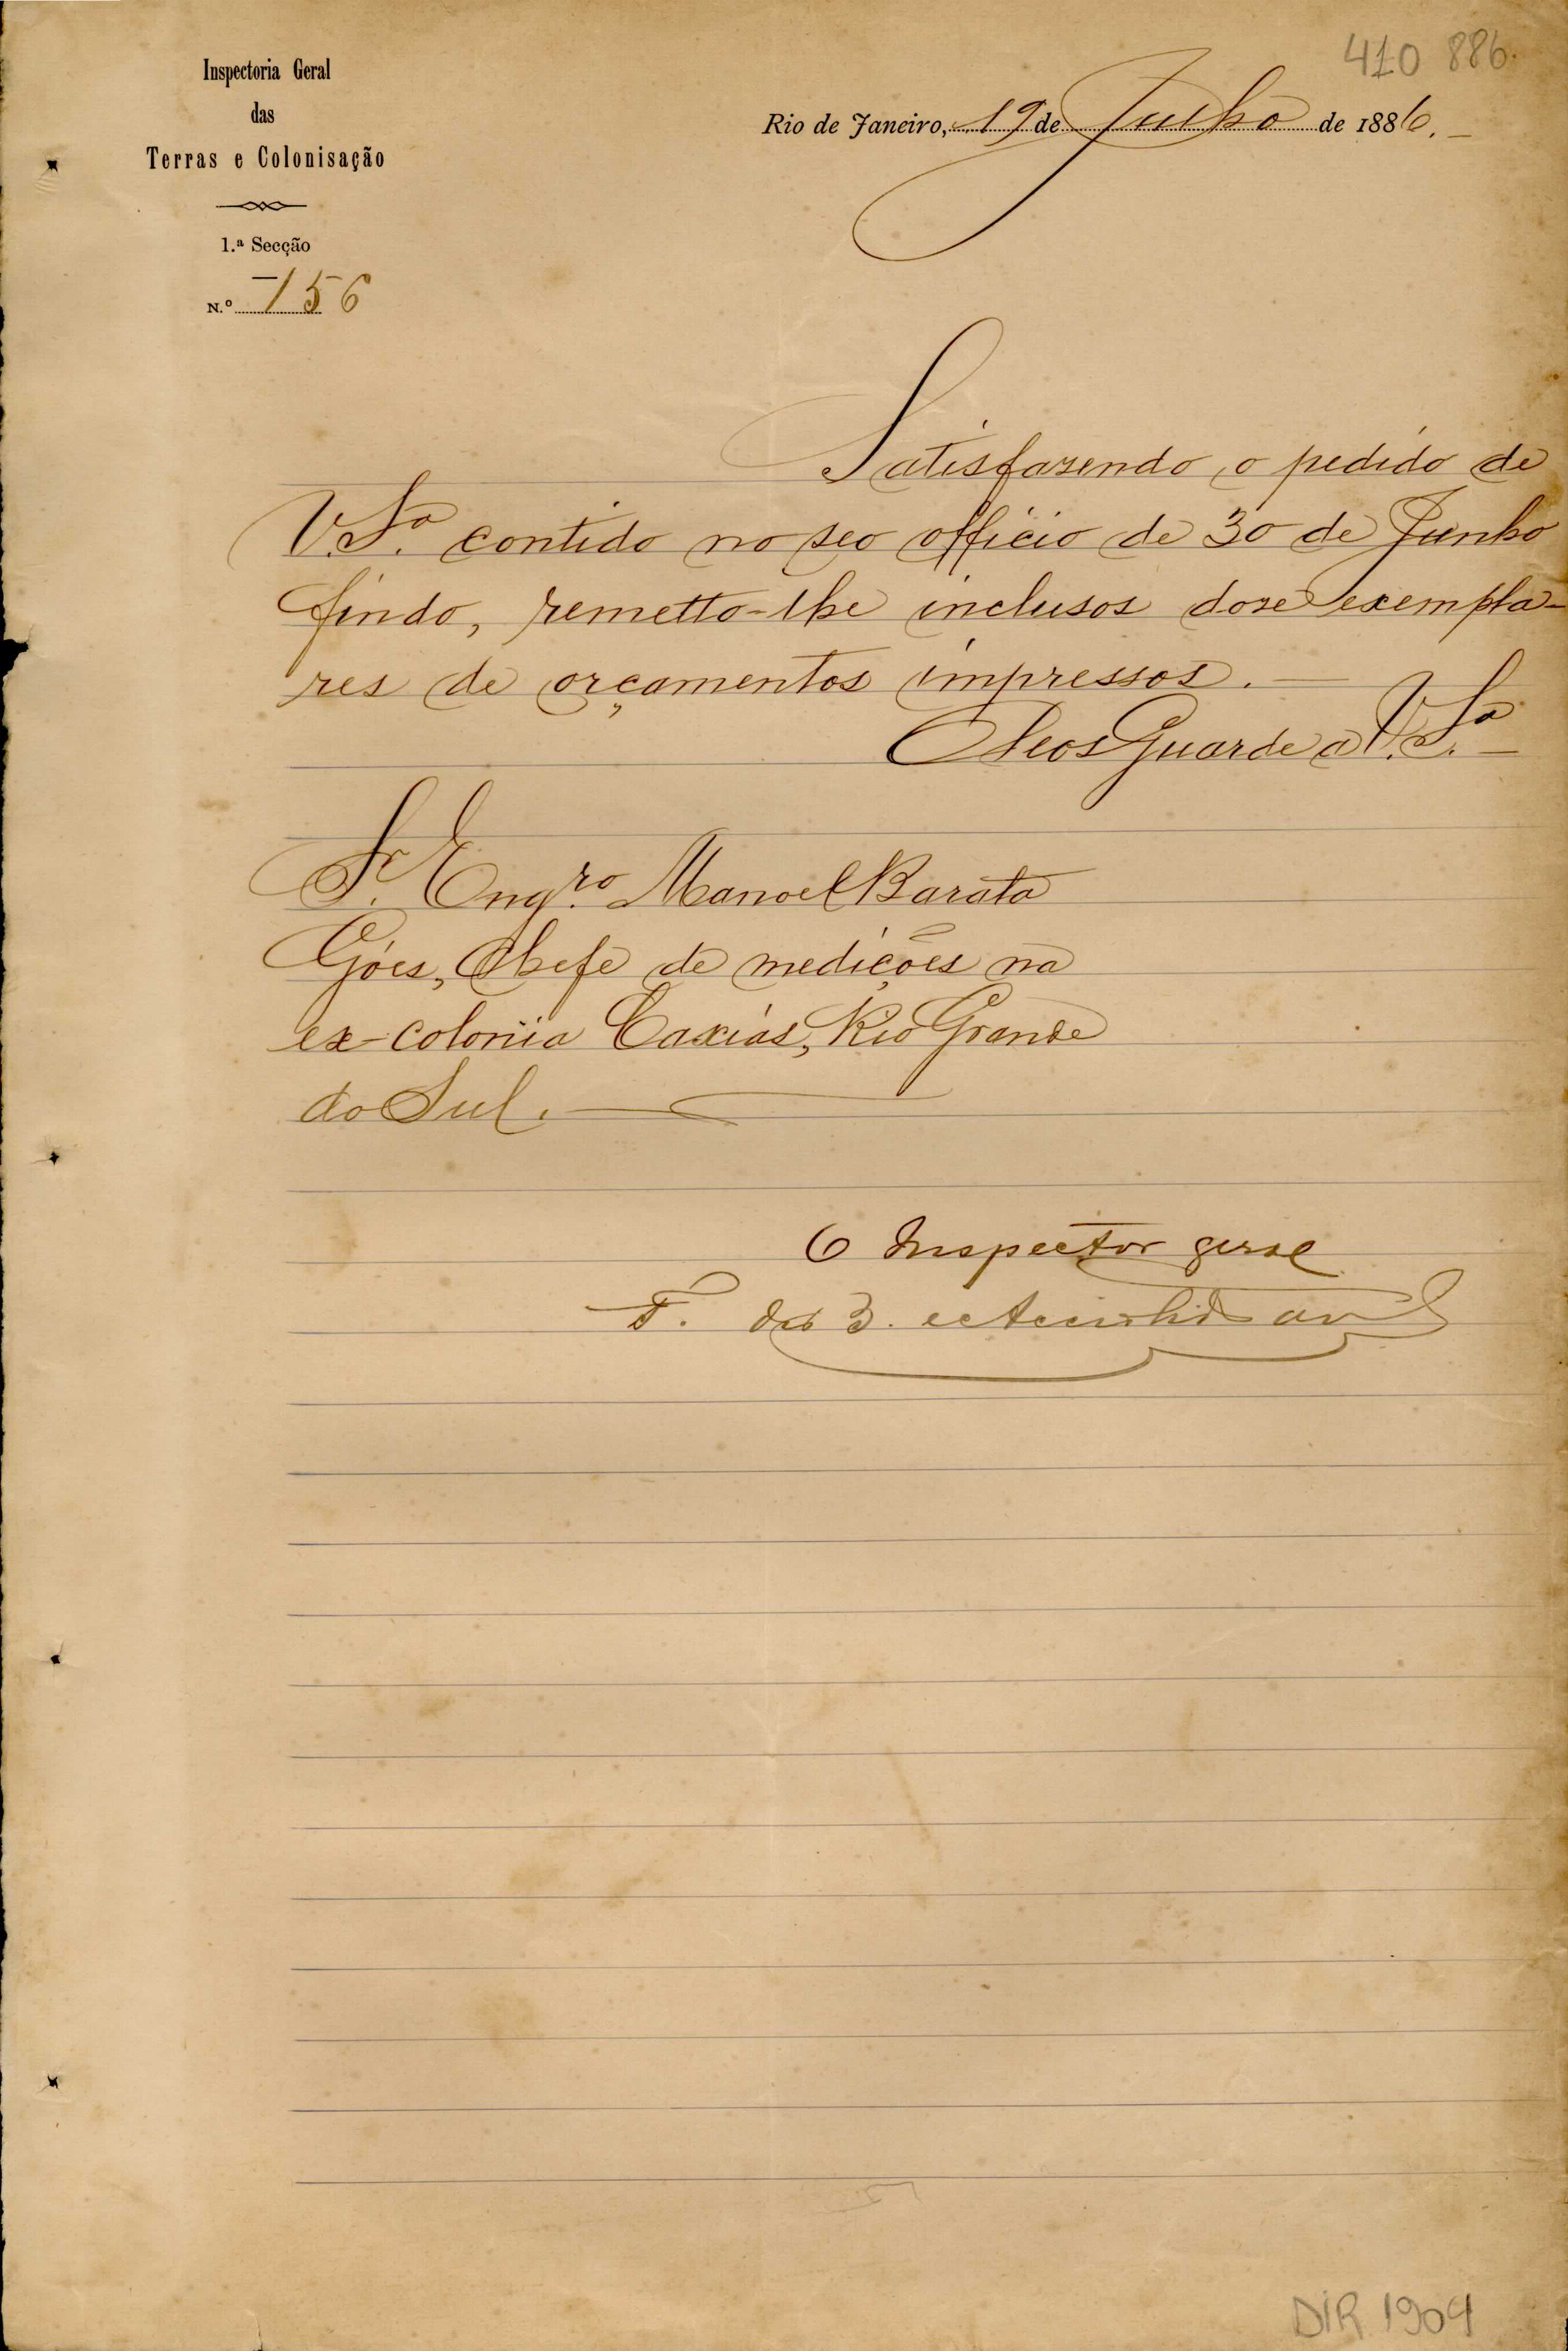 410 886.
Inspectoria Geral
das
Terras e Colonisação
1.ª Secção
N.º 156
Rio de Janeiro, 19 de Julho de 1886.
Satisfazendo o pedido de
V.Sª. contido no seo officio de 30 de Junho
findo, remetto-lhe inclusos doze exempla-
res de orçamentos impressos.
Deos Guarde a V.Sª.
Sr. Engro. Manoel Barata
Góes, Chefe de medições na
ex-colonia Caxias, Rio Grande
do Sul.
O Inspector geral
F. de B.
DIR 1904